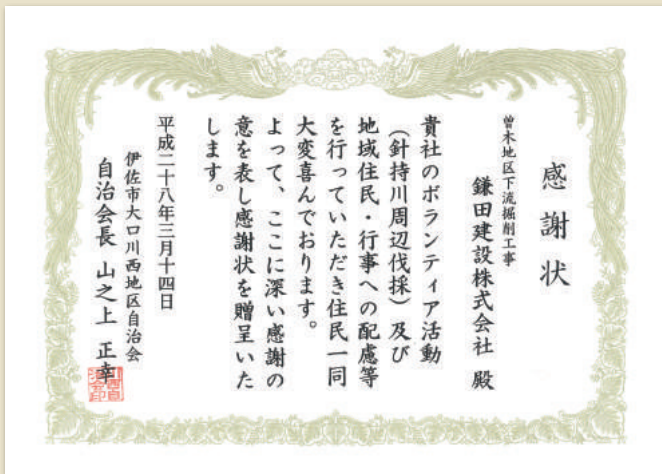 感謝状
曽木地区下流掘削工事
鎌田建設株式会社 殿
貴社のボランティア活動
（針持川周辺伐採）及び
地域住民・行事への配慮等
を行っていただき住民一同
大変喜んでおります。
よって、ここに深い感謝の
意を表し感謝状を贈呈いた
します。
平成二十八年三月十四日
伊佐市大口川西地区自治会
自治会長 山之上 正幸